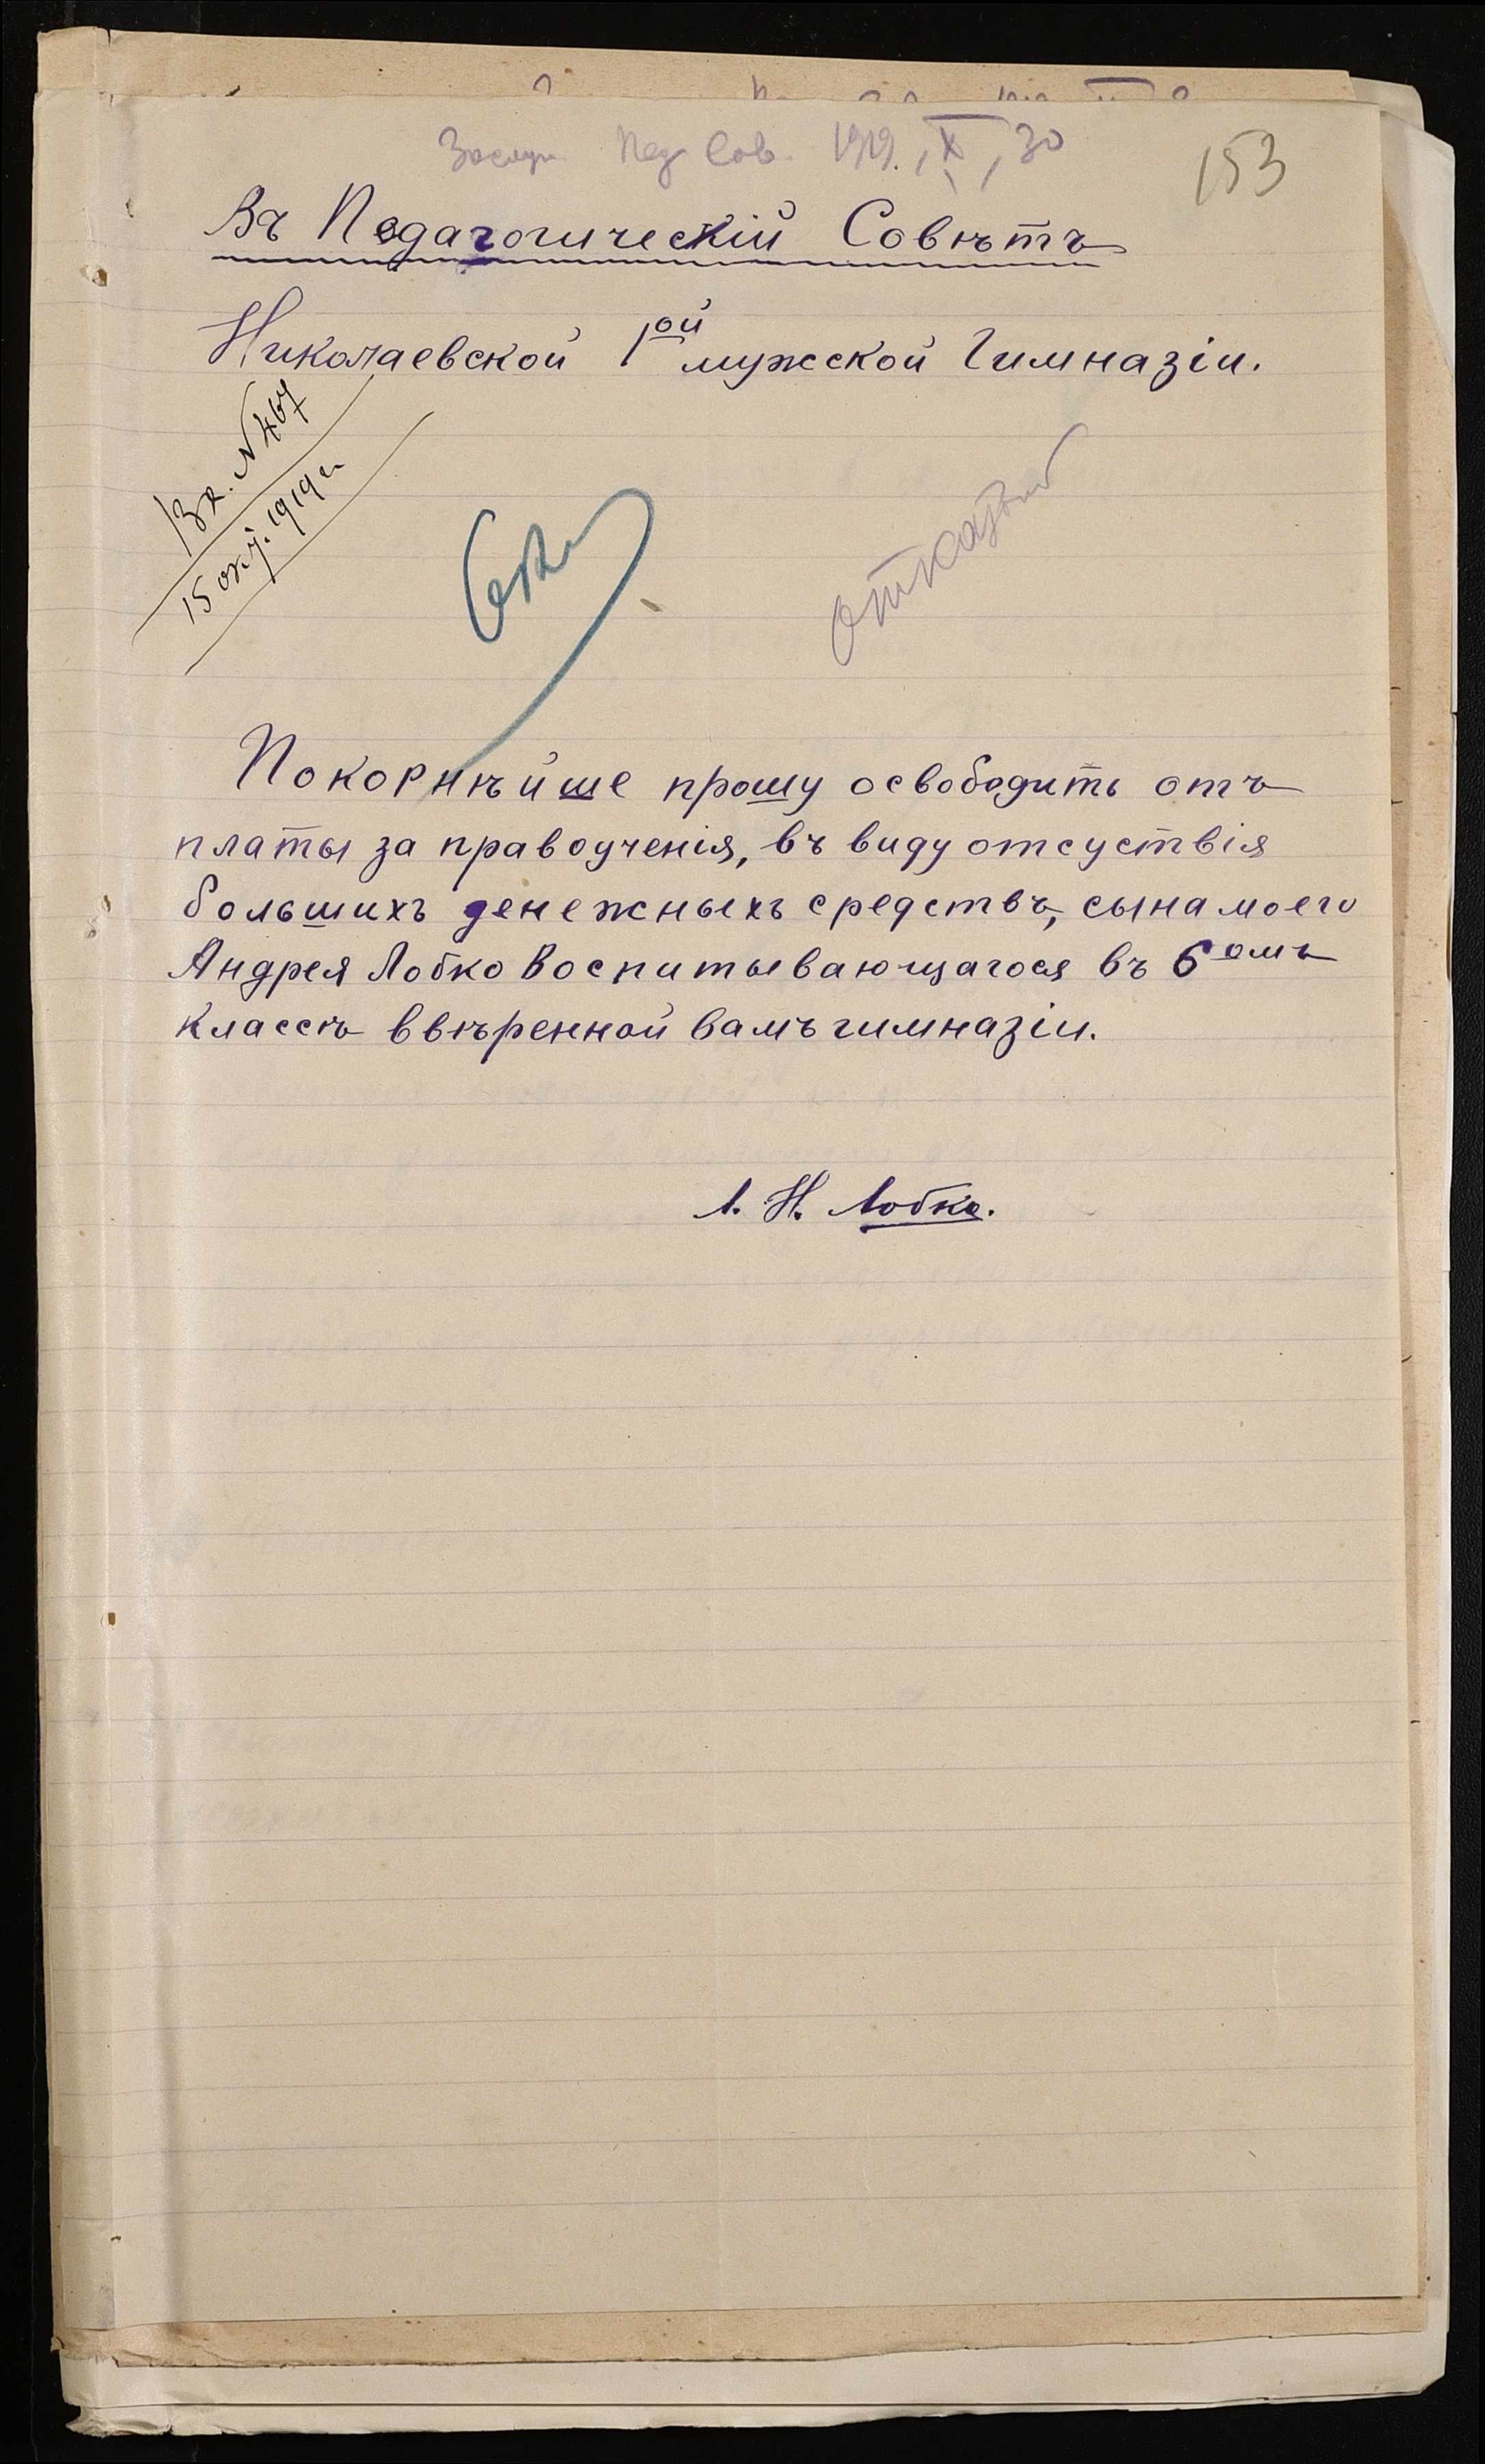 Засѣд. Пед Сов. 1919., X, 30
153
Въ Педагогическій Совѣтъ
Николаевской 1ой мужской Гимназіи.
Вх. № 467
15 окт. 1919 г.
отказать
Покорнѣйше прошу освободить отъ
платы за правоученія, въ виду отсуствія
большихъ денежныхъ средствъ, сына моего
Андрея Лобко Воспитывающагося въ 6омъ
классѣ ввѣренной вамъ гимназіи.
Л. Н. Лобко.